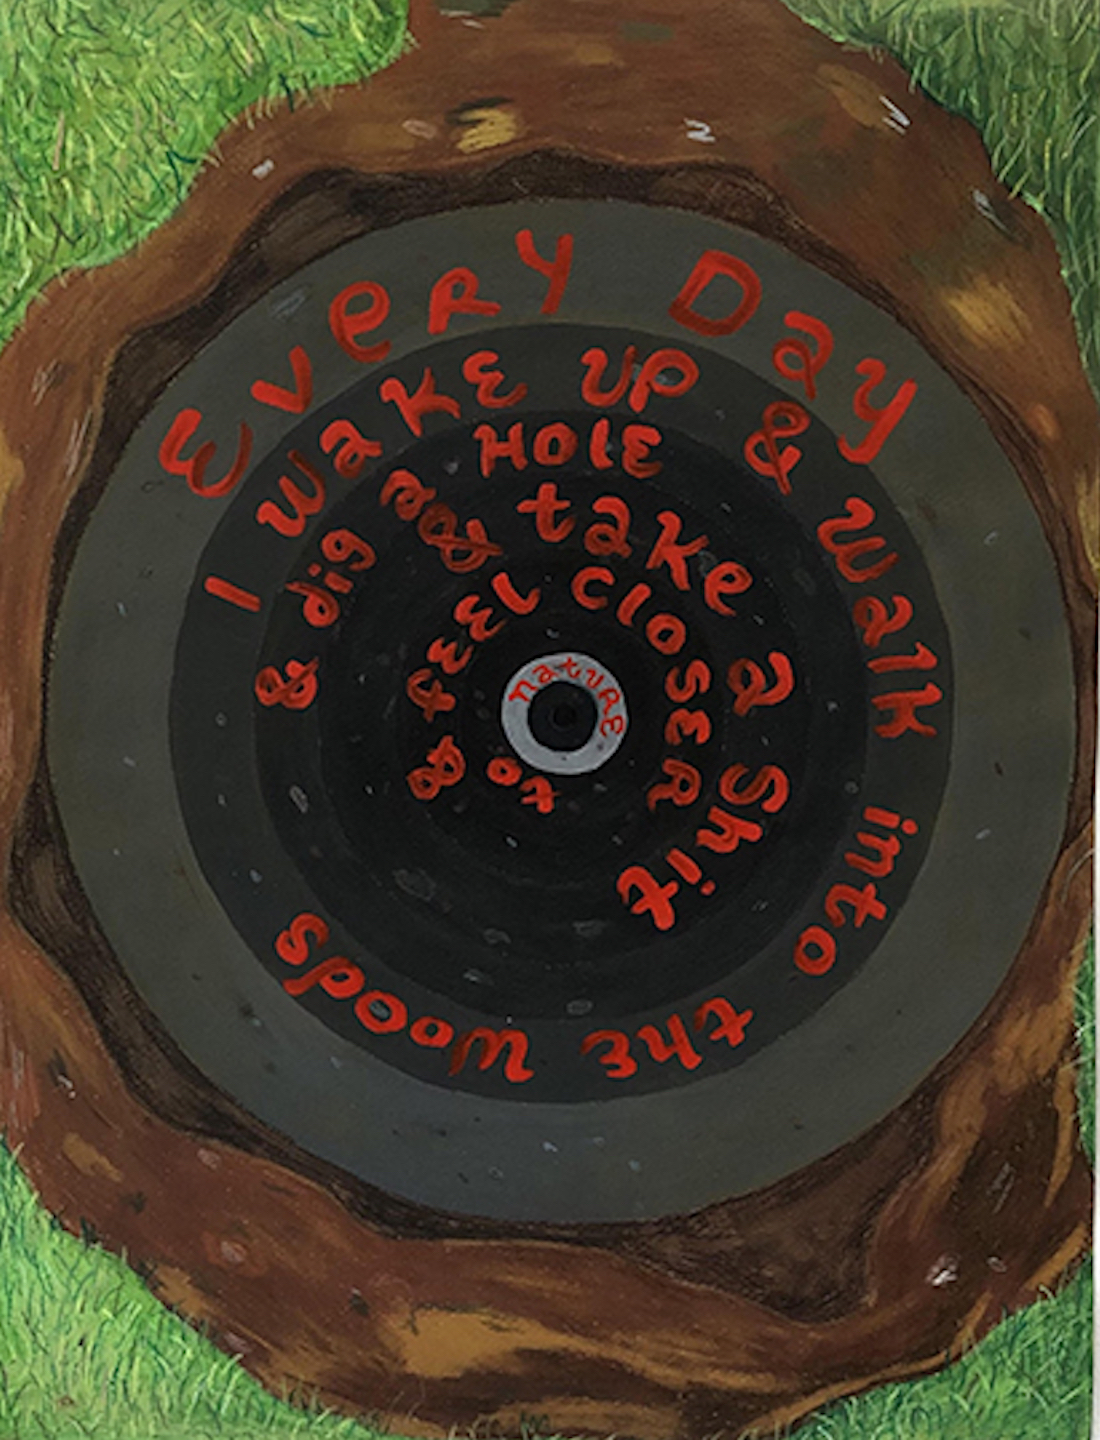 Every Day
I wake up & walk into the woods
& dig a HOLE
& take a Shit
& feel closer
to
nature